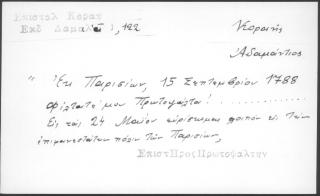 Επιστολ Κοραη
Εκδ Δαμαλᾶ 1,122
Κοραῆς
Ἀδαμάντιος
"Ἐκ Παρισίων, 15 Σεπτεμβρίου 1788
Φίλτατέ μου Πρωτοψάλτα! ..........
Εἰς τὰς 24 Μαΐου εὑρίσκομαι λοιπὸν εἰς τὴν
ἐπιφανεστάτην πόλιν τῶν Παρισίων,
ΕπιστΠροςΠρωτοψαλτην